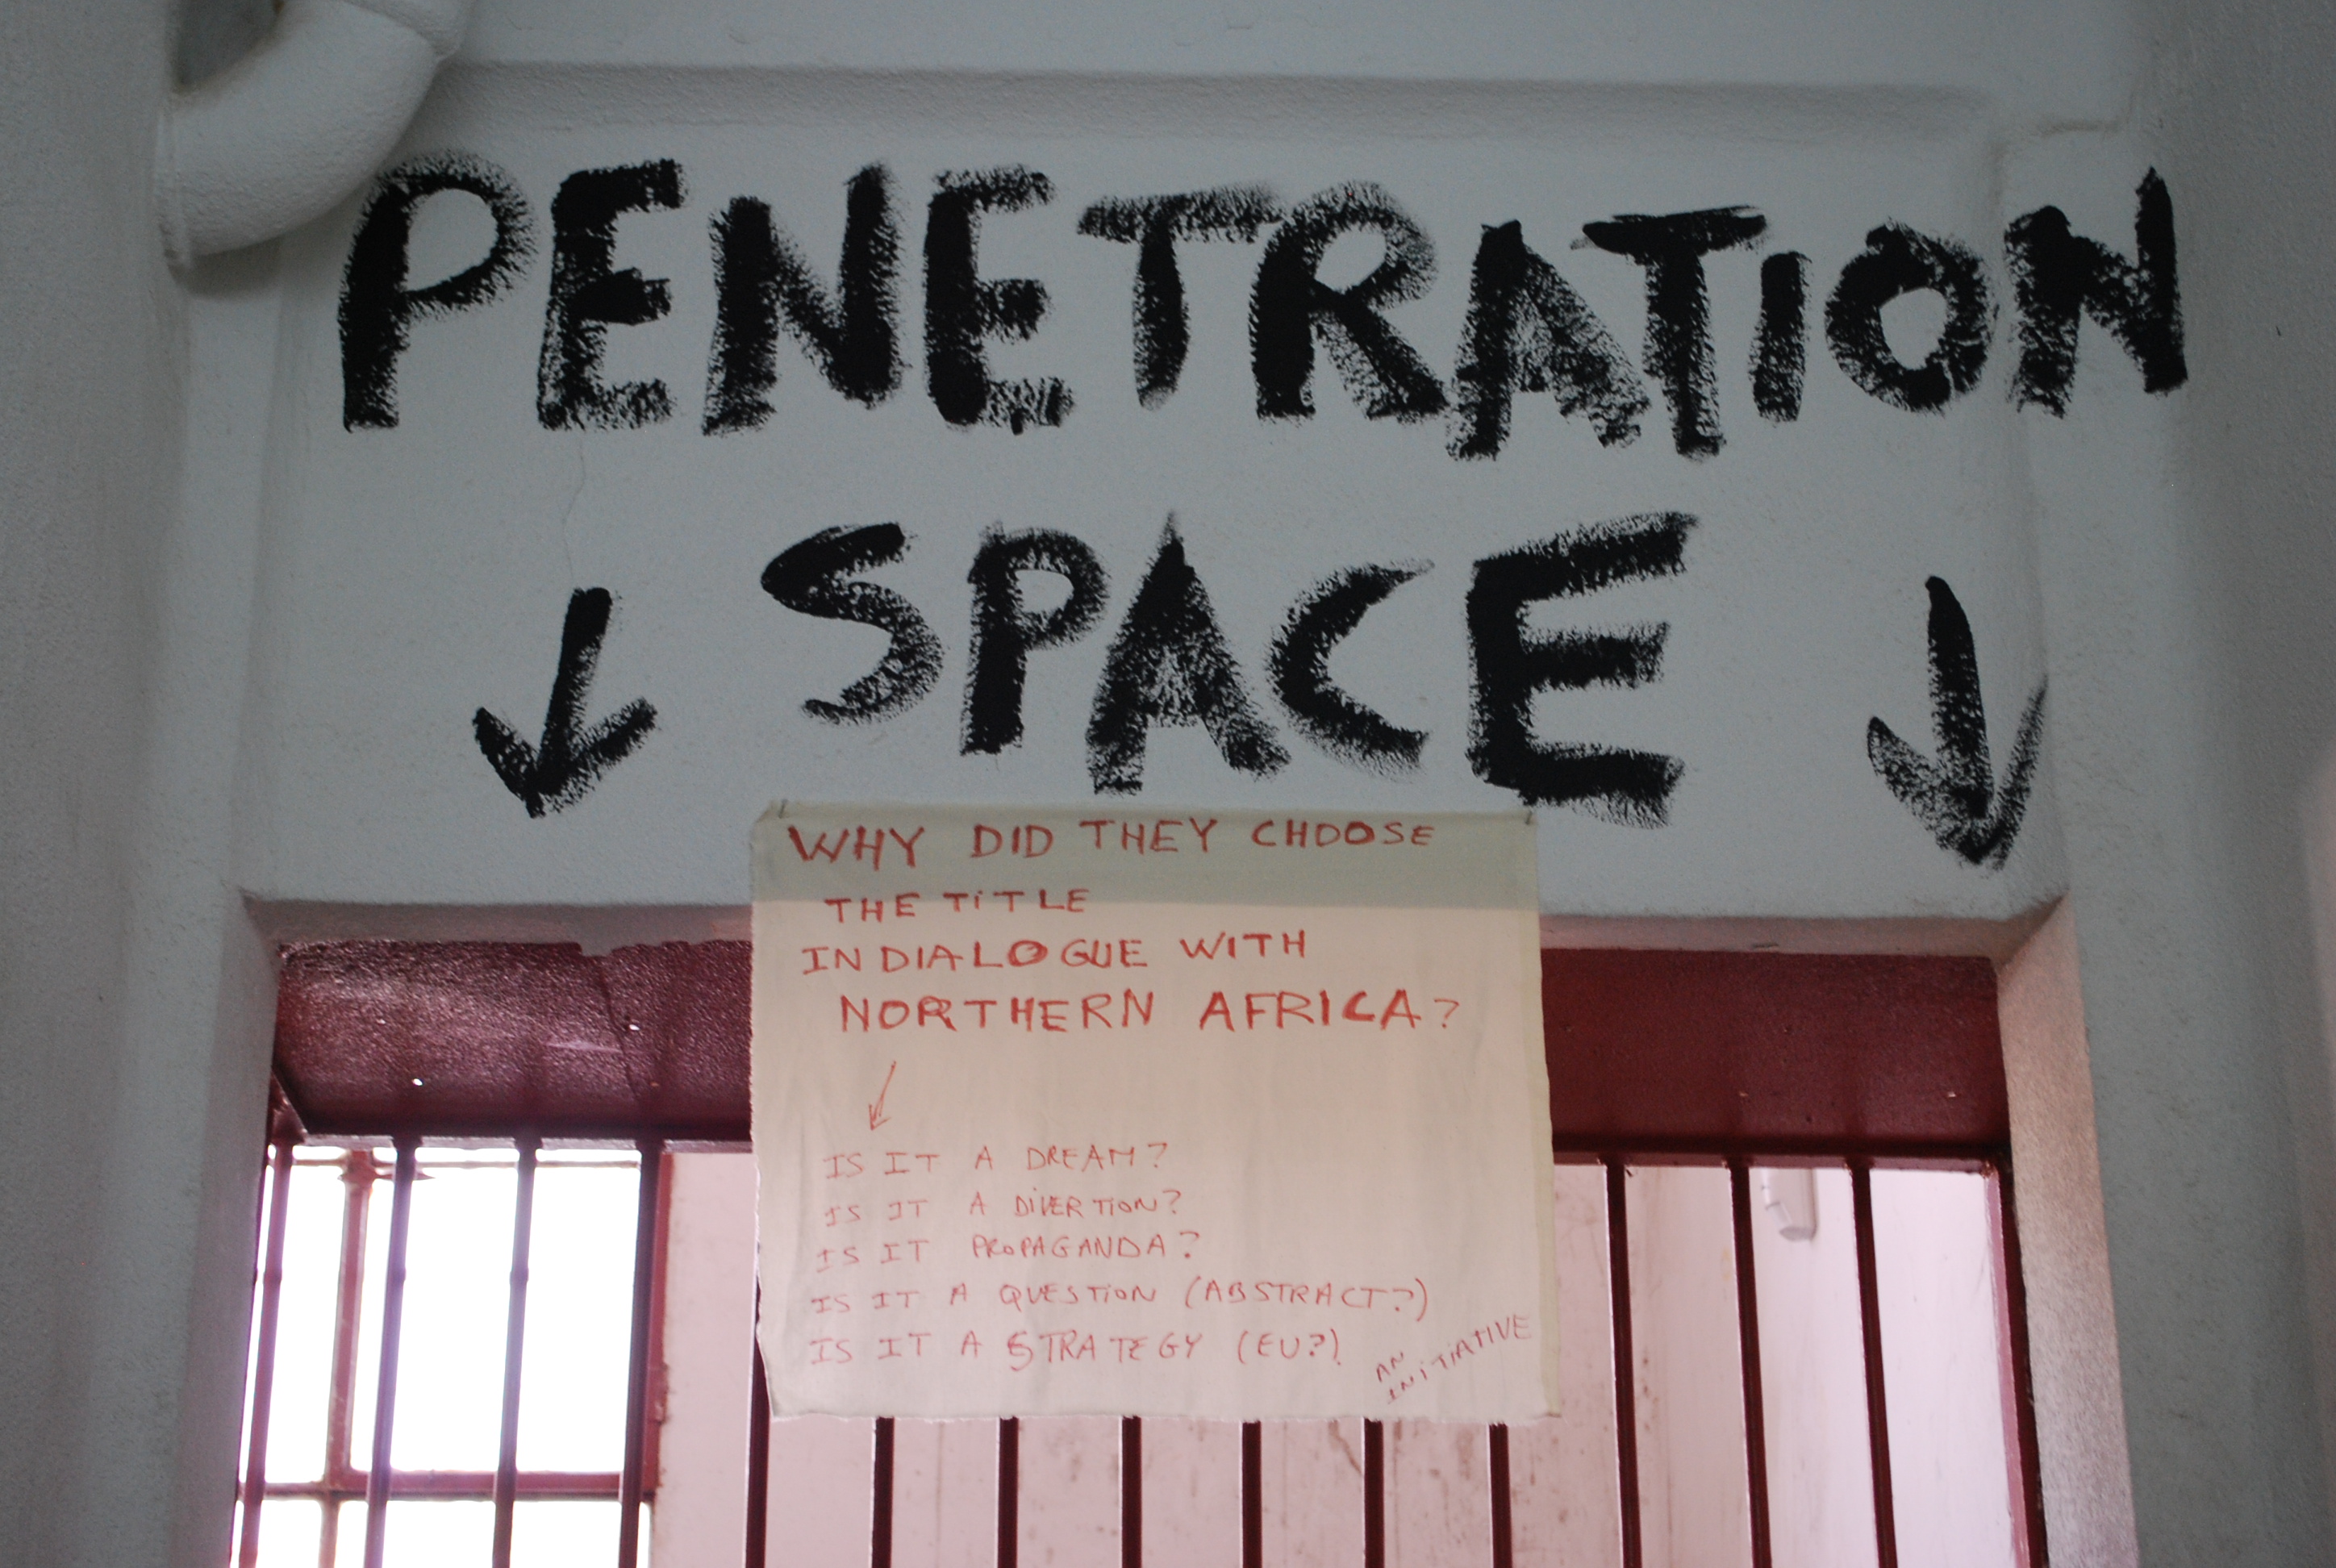 PENETRATION
SPACE
WHY DID THEY CHOOSE
THE TiTLE
IN DIALOGUE WITH
NORTHERN AFRICA?
IS IT A DREAM?
IS IT A DIVERTION?
IS IT PROPAGANDA?
IS IT A QUESTION (ABSTRACT?)
IS IT A STRATEGY (EU?)
AN
INITIATIVE